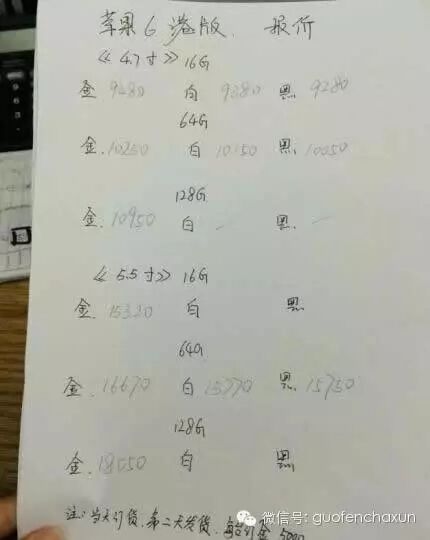 苹果6 港版. 报价
《4.7寸》16G
金 9480 白 9380 黑 9280
64G
金. 10250 白 10150 黑. 10050
128G
金. 10950 白 — 黑. —
《5.5寸》16G
金. 15320 白 黑
64G
金. 16670 白 15770 黑. 15750
128G
金. 18050 白 黑
注: 当天订货. 第二天发货. 每台订金
微信号: guofenchaxun